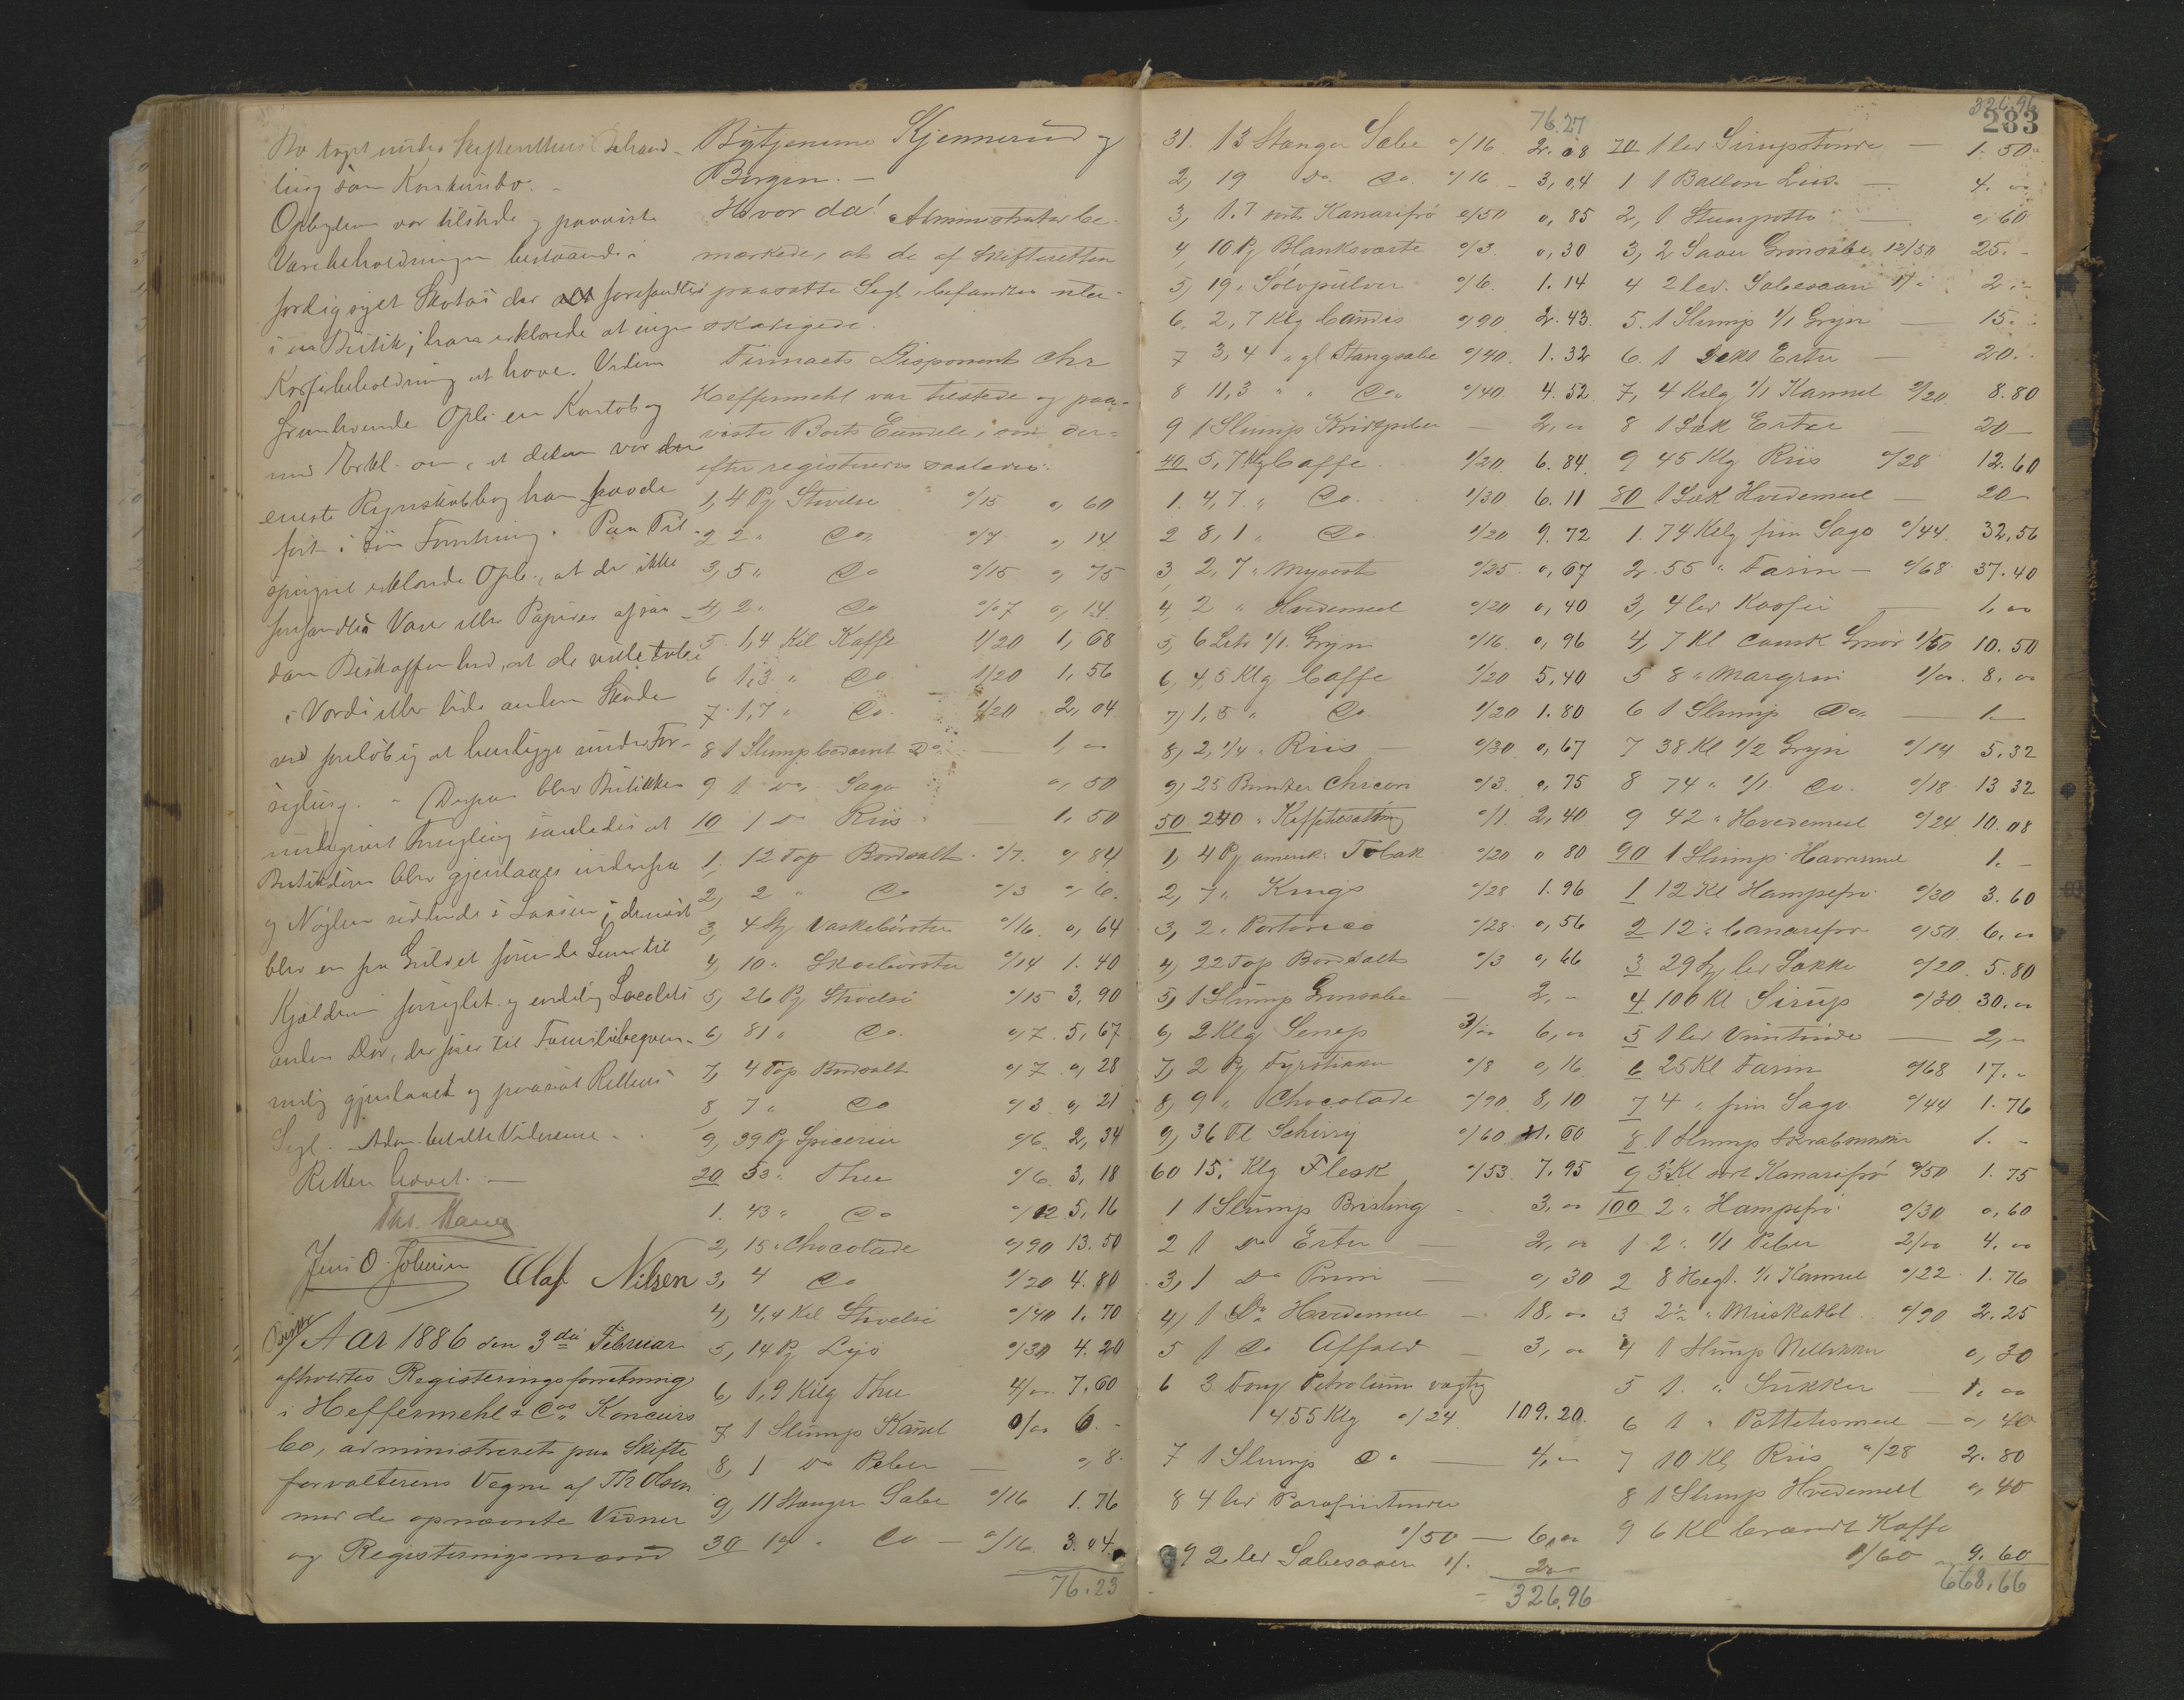 Bo taget under Skifterettens Behand-
ling som Konkursbo. -
Opbyderen var tilstede og paaviste
Varebeholdningen bestaaende i
færdigsyet Skotøi der alt forefandtes
i en Butik; han erklærede at ingen
Kassebeholdning at have. Videre
fremlevende Opb. en Kontobog
med Erkl. om, at denne var den
eneste Regnskabsbog han havde
ført i sin Forretning. Paa Til-
spørgsel erklærede Opb., at der ikke
forefandtes Varer eller Papirer af saa-
dan Beskaffenhed, at de vilde tabe
i Værdi eller lide anden Skade
ved foreløbig at henligge under For-
segling. - Derpaa blev Butikken
undergivet Forsegling saaledes at
Butikdøren blev gjenlaaset indenfra
og Nøglen siddende i Laasen; dernæst
blev en fra Gulvet førende Lem til
Kjælderen forseglet og endelig Localets
anden Dør, der fører til Familiebequem-
melig gjenlaaset og paasat Rettens
Segl. Adm. betalte Vidnerne.
Retten hævet. -
Ths. Maria
Jens O. Johnsen Olaf Nilsen
Aar 1886 den 3die Februar
afholdtes Registeringsforretning
i Heffermehl & Cos Koncurs
bo, administreret paa Skifte
forvalterens Vegne af Th Olsen
med de opnævnte Vidner
og Registeringsmænd
Bytjenerne Kjennerud og
Borgen. -
Hvor da! Administrator be-
mærkede, at de af Skifteretten
paasatte Segl, befandtes ube-
skadigede.
Firmaets Disponent Chr
Heffermehl var tilstede og paa-
viste Boets Eiendele, som der-
efter registreres saaledes:
1, 4 Pk Stivelse 0/15 0, 60
2 2 " Do 0/7 0, 14
3, 5 " Do 0/15 0, 75
4, 2 " Do 0/07 0, 14
5 1,4 Kil Kaffe 1/20 1, 68
6 1,3 " Do 1/20 1, 56
7 1,7 " Do 1/20 2, 04
8 1 Slump Do — 1, 00
9 1 Do Sago 0, 50
10 1 Do Riis — 1, 50
1. 12 Top Bordsalt 0/7. 0, 84
2, 2 " Do 0/3 0, 6.
3, 4 Stk Vaskebørster 0/16. 0, 64
4, 10 " Skobørster 0/14 1. 40
5, 26 Pk Stivelse 0/15 3, 90
6, 81 " Do 0/7. 5, 67
7, 4 Top Bordsalt 0/7 0, 28
8, 7 " Do 0/3 0, 21
9, 39 Pk Spicerier 0/6 2, 34
20 53 " Thee 0/6 3, 18
1. 43 " Do 0/12 5, 16
2, 15 " Chocolade 0/90 13. 50
3, 4 Do 1/20 4. 80
4, 4,4 Kil Stivelse 0/40 1. 70
5, 14 Pk Lys 0/30 4. 20
6, 1,9 Kilg Thee 4/00 7. 60
7 1 Slump Kanel 6. -
8, 1 Do Peber — 0, 8.
9, 11 Stænger Sæbe 0/16 1. 76
30 19 " Do — 0/16 3. 04.
76.23
76.27
31. 13 Stænger Sæbe 0/16 2. 08
2, 19 Do Do 0/16 - 3, 04
3, 1.7 sort Kanarifrø 0/50 0, 85
4, 10 Pk Blanksværte 0/3. 0, 30
5, 19 " Sølvpulver 0/6. 1. 14
6. 2,7 Klg Candis 0/90 2. 43.
7 3,4 " gl Stangsæbe 0/40. 1. 32
8 11,3 " " Do 0/40. 4. 52
9 1 Slump Kridtpiber — 2, 00
40 5,7 Klg Caffe 1/20. 6. 84
1. 4,7 " Do 1/30 6. 11
2 8,1 " Do 1/20 9. 72
3 2,7 " Mysost 0/25 0, 67
4, 2 " Hvedemeel 0/20 0, 40
5, 6 Litr 1/1 Gryn 0/16. 0, 96
6, 4,5 Klg Caffe 1/20 5. 40
7) 1,5 " Do 1/20 1. 80
8, 2,1/4 " Riis — 0/30 0, 67
9, 25 Bundter Chicori 0/3. 0, 75
50 240 " Kaffetilsætning 0/1. 2, 40
1, 4 Pk amerik. Tobak 0/20 0 80
2, 7 " Krings 0/28 1. 96
3, 2 " Portorico 0/28. 0, 56
4, 22 Top Bordsalt 0/3 0, 66
5, 1 Slump Grønsæbe — 2, -
6, 2 Klg Senep 3/00 6, 00
7, 2 Pk Fyrstikker 0/8 0, 16
8, 9 " Chocolade 0/90. 8, 10
9, 36 Fl Scherry 0/60 21. 60
60 15 " Klg Flesk 0/53. 7. 95
1 1 Slump Brisling — 3, 00
2 1 Do Erter — 2, 00
3, 1 Do Prim — 0, 30
4, 1 Do Hvedemel — 18. 00
5 1 Do Affald — 3, 00
6 3 Tong Petroleum vægtig
455 Klg 0/24 109. 20.
7 1 Slump Do — 4, 00
8 4 led Parafintønder
1/50 — 6, 00
69 2 led Sæbesaaer 1/. 2,00
326.96
326.96
283
70 1 led Sirupstønde — 1. 50
1 1 Ballon — 4. 00
2, 1 — 0, 60
3, 2 Saaer Grønsæbe 12/50 25. -
4 2 led. Sæbesaaer 1/. 2. -
5. 1 Slump 1/1 Gryn — 15. -
6. 1 Sæk Erter — 20. -
7, 4 Kilg 1/1 Kannel 2/20 8. 80
8 1 Sæk Erter — 20 —
9 45 Klg Riis 0/28 12. 60
80 1 Sæk Hvedemeel — 20 -
1. 74 Kilg fiin Sago 0/44 32. 56
2. 55 " Farin — 0/68 37. 40
3, 4 led — 1. 00
4, 7 Kl dansk Smør 1/50 10. 50
5 8 " Margrin 1/00. 8. 00
6 1 Slump Do — 1. —
7 38 Kl 1/2 Gryn 0/14 5. 32
8 74 " 1/1 Do. 0/18 13 32
9 42 " Hvedemeel 0/24 10. 08
90 1 Slump Havremeel 1. -
1 12 Kl Hampefrø 0/30 3. 60
2 12 " Canarifrø 0/50. 6. 00
3 29 Stk led Sække 0/20. 5. 80
4 100 Kl Sirup 0/30 30. 00
5 1 led Viintønde — 2, 00
6 25 Kl Farin 0/68 17. -
7 4 " fiin Sago 0/44 1. 76
8 1 Slump 1. -
9 3½ Kl sort Kanarifrø 0/50 1. 75
100 2 " Hampefrø 0/30 0, 60
1 2 " 1/1 Peber 2/00 4. 00
2 8 Hegt. 1/1 Kannel 0/22 1. 76
3 2½ " Muskatbl. 0/90 2. 25
4 1 Slump Nelliker 0, 30
5 1. " Sukker — 1. 00
6 1 " Pottetismeel — 0, 40
7 10 Kl Riis 0/28 2. 80
8 1 Slump Hvedemeel 0, 40
9 6 Kl brændt Kaffe
1/60 9. 60
668.66